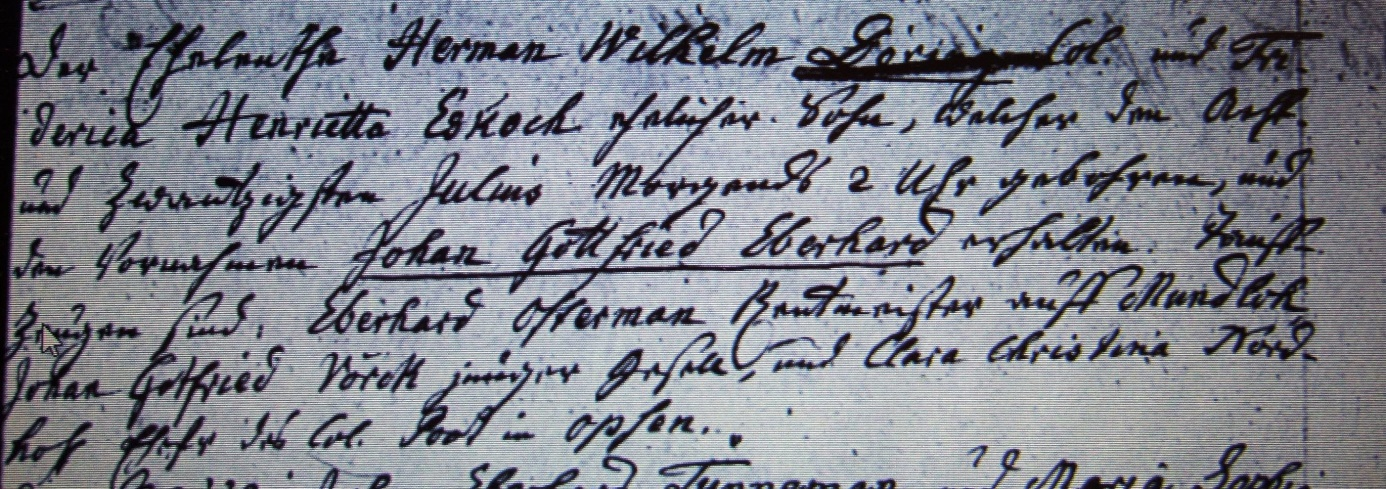 Der Eheleuthe Herman Wilhelm Col. und Fri-
derica Henrietta Eskock ehelicher Sohn, welcher den Acht
und zwantzigsten Julius Morgends 2 Uhr gebohren, und
den Vornahmen Johan Gottfried Eberhard erhalten. Tauff
Zeugen sind. Eberhard Osterman Rentmeister auff
Johan Gotfried junger Gesell, und Clara Christina Nord-
hof Ehefr des Col. in
Eberhard Maria